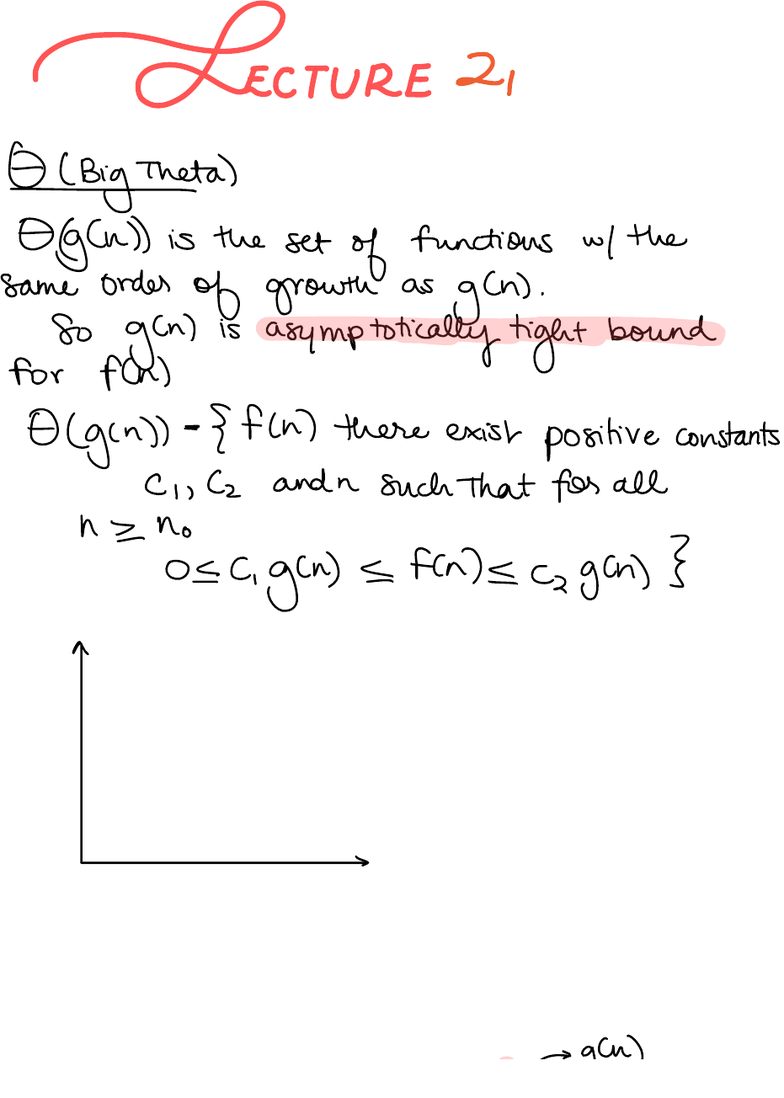 LECTURE 21
Θ (Big Theta)
Θ(g(n)) is the set of functions w/ the
same order of growth as g(n).
So g(n) is asymptotically tight bound
for f(n)
Θ(g(n)) - { f(n) there exist positive constants
C₁, C₂ and n such that for all
n ≥ n₀
0 ≤ C₁ g(n) ≤ f(n) ≤ C₂ g(n) }
→ g(n)